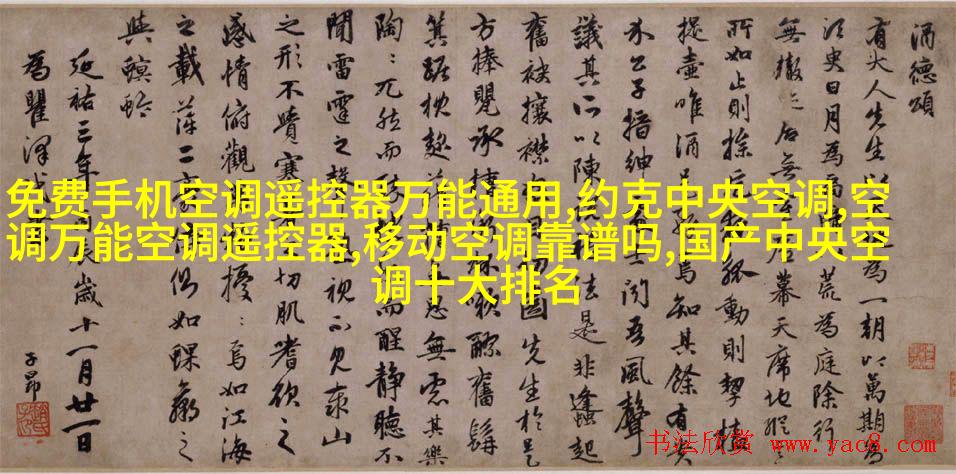 酒德頌
有大人先生以
為一朝以萬期為
須臾日月為
荒為庭除行
無轍
居無
幕天席地縱
所如止則操
觚動則挈榼
提壺唯酒
焉知其餘有貴
介公子搢紳
士聞吾風聲
議其所以
陳
法是非鋒起
奮袂攘襟
先生於是
方捧甖承
醪奮髯
箕踞枕麴
無思無慮其樂
陶：兀然而
而醒靜聽不
聞雷霆之聲
視不見泰山
之形不覺寒
切肌嗜欲之
感情俯觀
擾：焉如江海
之載萍二
側如蜾蠃之
與螟蛉
延祐三年
歲十一月廿一日
為瞿澤
子昂
免费手机空调遥控器万能通用,约克中央空调,空
调万能空调遥控器,移动空调靠谱吗,国产中央空
调十大排名
书法欣赏 www.yac8.com